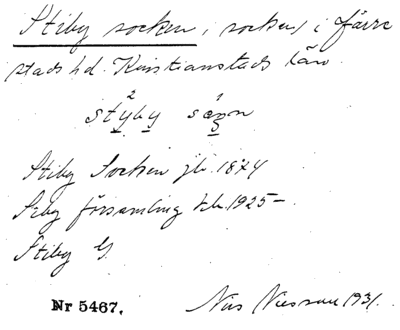 Stiby socken, socken i Järre
stads hd. Kristianstads län.
styby sogn
Stiby Socken jb. 1874
Stiby församling 1925–
Stiby G
Nr 5467. Nils Nilsson 1931.